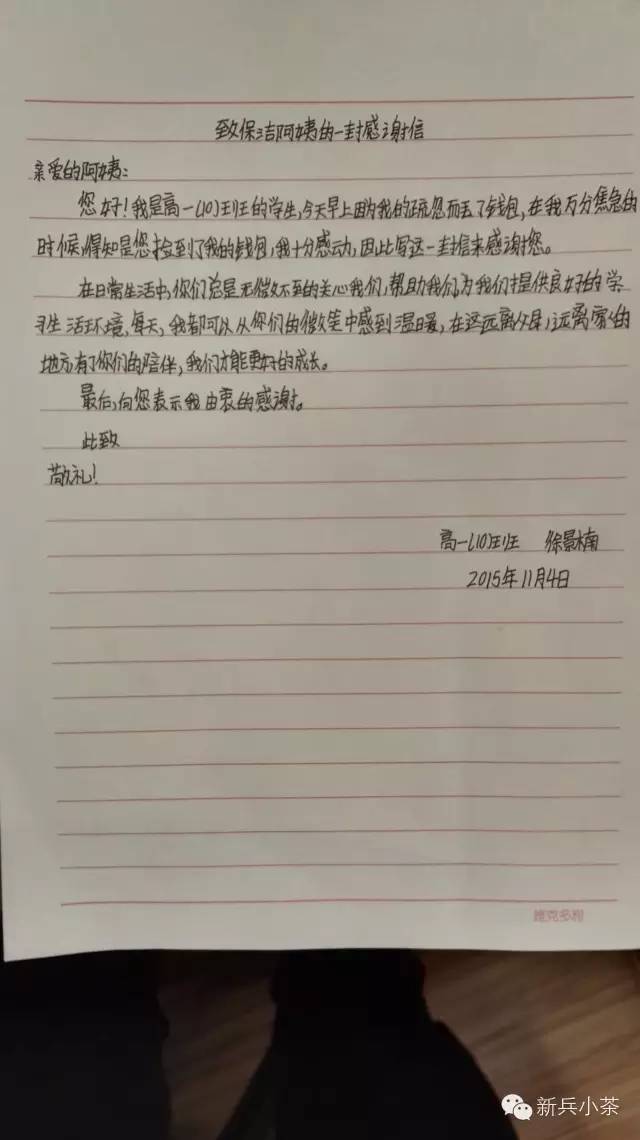 致保洁阿姨的一封感谢信
亲爱的阿姨:
您好!我是高一(10)班的学生,今天早上因为我的疏忽而丢了钱包,在我万分焦急的
时候,得知是您捡到了我的钱包,我十分感动,因此写这一封信来感谢您。
在日常生活中,你们总是无微不至的关心我们,帮助我们,为我们提供良好的学
习生活环境,每天,我都可以从你们的微笑中感到温暖,在这远离父母,远离家的
地方,有了你们的陪伴,我们才能更好的成长。
最后,向您表示我由衷的感谢。
此致
敬礼!
高一(10)班 徐景楠
2015年11月4日
维克多利
新兵小茶